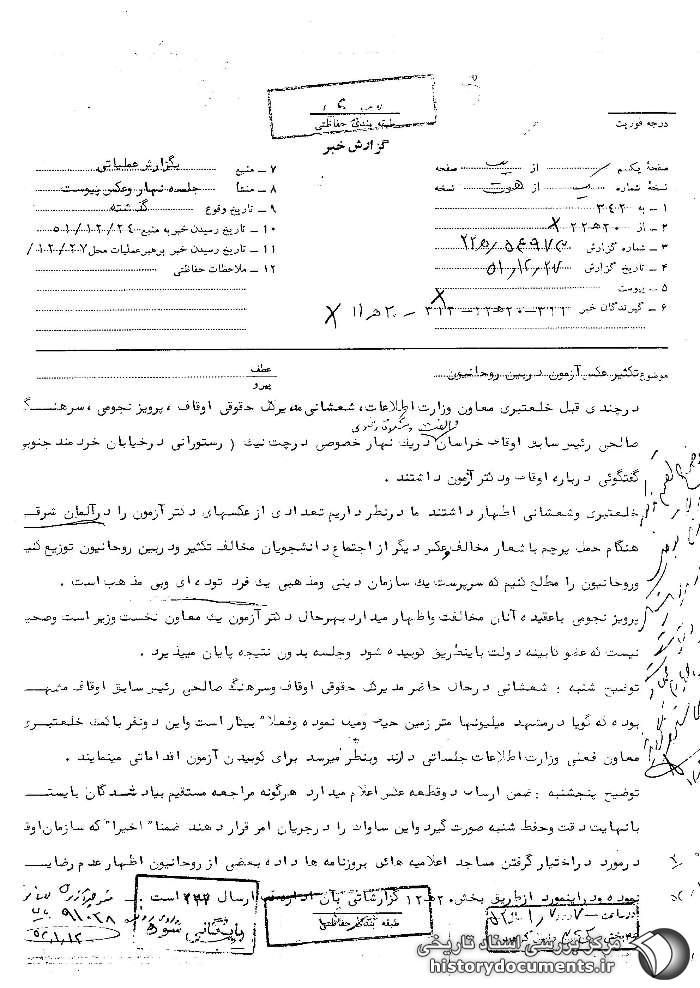 طبقه بندی حفاظتی
گزارش خبر
درجه فوریت
صفحه یکم از یک صفحه
نسخه شماره یک از هفت نسخه
۱ – به ۳۴۲
۲ – از ۲۰هـ۲۲
۳ – شماره گزارش
۴ – تاریخ گزارش ۵۱،۱۲،۲۷
۵ – پیوست
۶ – گیرندگان خبر
۷ – منبع بگزارش عملیاتی
۸ – منشأ جلسه نهار وعکس پیوست
۹ – تاریخ وقوع گذشته
۱۰ – تاریخ رسیدن خبر به منبع ۵۱/۱۲/۲۴
۱۱ – تاریخ رسیدن خبر برهبر عملیات محل ۱۲/۲۷/
۱۲ – ملاحظات حفاظتی
موضوع تکثیر عکس آزمون در بین روحانیون
عطف
پیرو
در چندی قبل خلعتبری معاون وزارت اطلاعات، شعشانی مدیرکل حقوقی اوقاف، پرویز نجومی، سرهنگ
صالحی رئیس سابق اوقاف خراسان در یک نهار خصوصی در چت نیت ( رستورانی در خیابان خردمند جنوبی
گفتگوئی درباره اوقاف و دکتر آزمون داشتند .
خلعتبری وشعشانی اظهار داشتند ما در نظر داریم تعدادی از عکسهای دکتر آزمون را در آلمان شرقی
هنگام حمل پرچم با شعار مخالف و عکس دیگر از اجتماع دانشجویان مخالف تکثیر و در بین روحانیون توزیع کنیم
وروحانیون را مطلع کنیم که سرپرست یک سازمان دینی ومذهبی یک فرد توده ای وبی مذهب است .
پرویز نجومی باعقیده آنان مخالفت واظهار میدارد بهرحال دکتر آزمون یک معاون نخست وزیر است وصحیح
نیست که عضو کابینه دولت باینطریق کوبیده شود وجلسه بدون نتیجه پایان میپذیرد .
توضیح شنبه : شعشانی در حال حاضر مدیرکل حقوقی اوقاف وسرهنگ صالحی رئیس سابق اوقاف مشهد
بوده که گویا در مشهد میلیونها متر زمین حیف ومیل نموده وفعلا" بیکار است واین دونفر باکمک خلعتبری
معاون فعلی وزارت اطلاعات جلساتی دارند وبنظر میرسد برای کوبیدن آزمون اقداماتی مینمایند .
توضیح پنجشنبه : ضمن ارسال دوقطعه عکس اعلام میدارد هرگونه مراجعه مستقیم بیاد شدگان بایستی
بانهایت دقت وحفظ شنبه صورت گیرد واین ساواک را در جریان امر قرار دهند ضمنا" اخیرا" که سازمان اوقاف
درمورد دراختیار گرفتن مساجد اعلامیه هائی بروزنامه ها داده بعضی از روحانیون اظهار عدم رضایت
نموده و در اینمورد از طریق بخش ۲۰هـ۱۲ گزارشاتی بآن اداره ارسال است .
بایگانی شود
۹۱۰۲۸
۵۲،۱،۱۲
طبقه بندی حفاظتی
مرکز بررسی اسناد تاریخی
historydocuments.ir